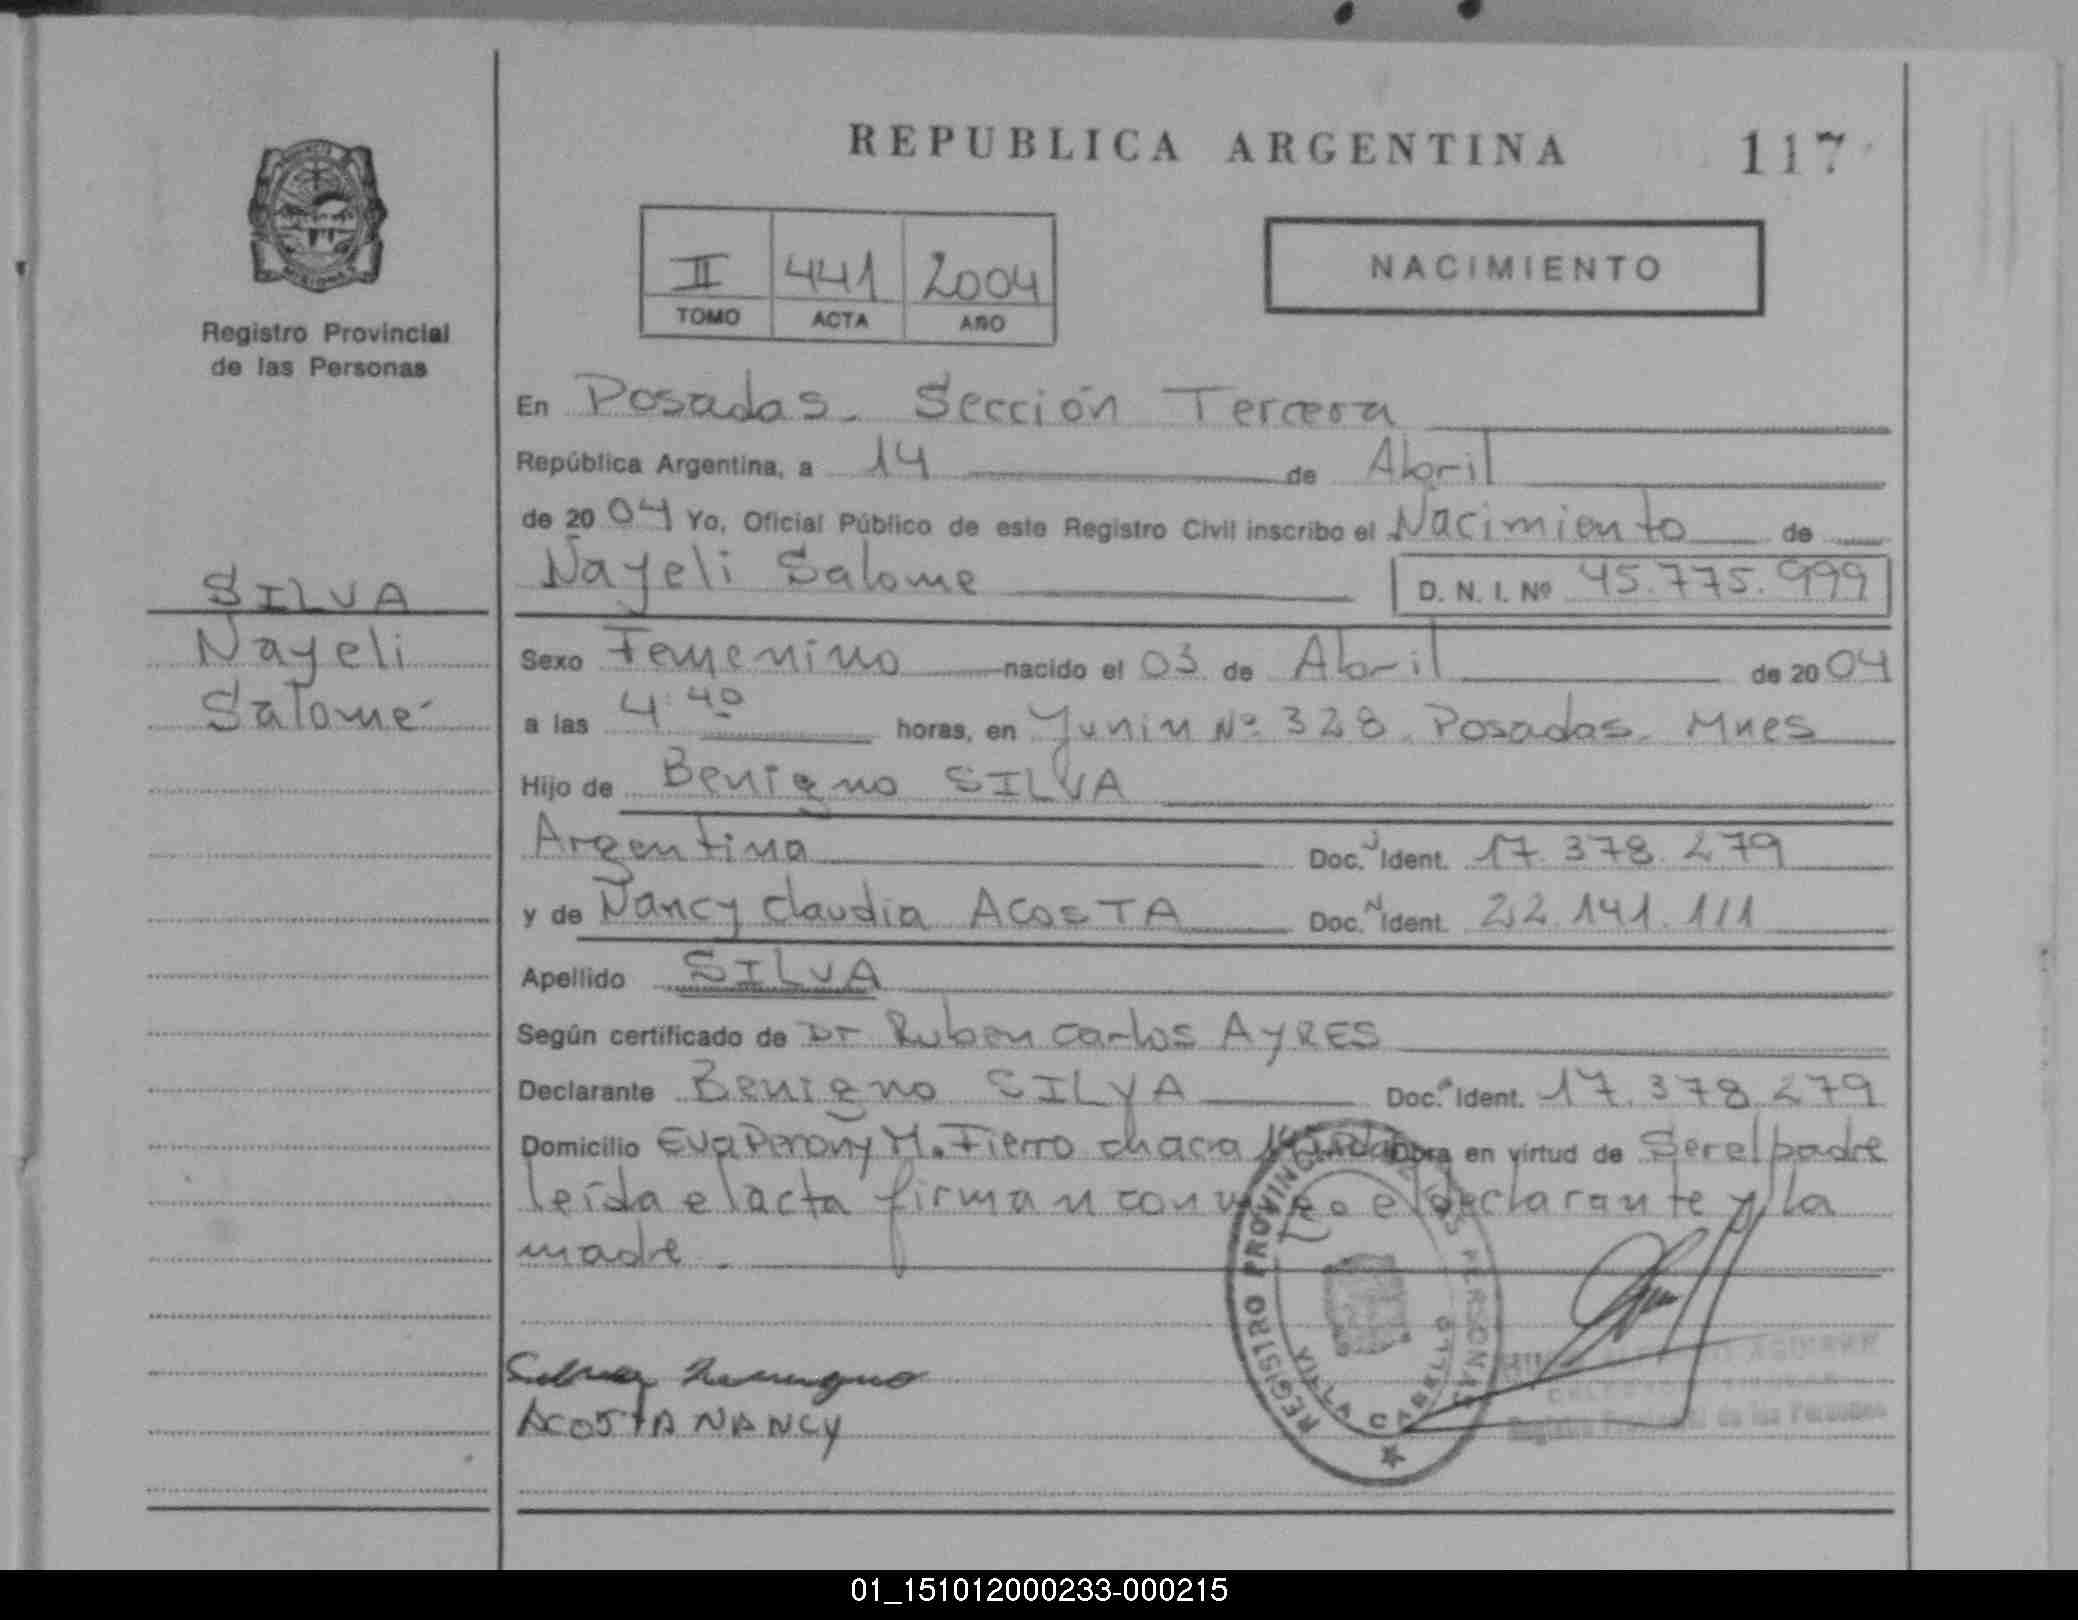 REPUBLICA ARGENTINA
117
Registro Provincial
de las Personas
II 441 2004
TOMO ACTA AÑO
NACIMIENTO
En Posadas. Sección Tercera
República Argentina, a 14 de Abril
de 2004 Yo, Oficial Público de este Registro Civil inscribo el Nacimiento de
Nayeli Salome D. N. I. Nº 45.775.999
SILVA
Nayeli
Salomé
Sexo Femenino nacido el 03 de Abril de 2004
a las 4:40 horas, en Yunin Nº 328. Posadas. Mnes
Hijo de Benigno SILVA
Argentina Doc. Ident. 17.378.279
y de Nancy Claudia ACOSTA Doc. Ident. 22.141.111
Apellido SILVA
Según certificado de Dr Ruben Carlos AYRES
Declarante Benigno SILVA Doc. Ident. 17.378.279
Domicilio Eva Peron y M. Fierro chacra Obra en virtud de Ser el padre
leída el acta firman conmigo el declarante y la
madre.
Silva Benigno
ACOSTA NANCY
REGISTRO PROVINCIAL DE LAS PERSONAS
VILLA CABELLO
AGUIRRE
Registro Provincial de las Personas
01_151012000233-000215